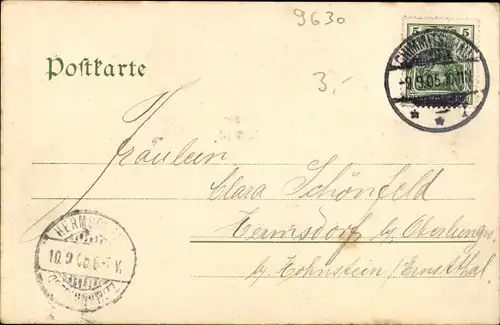 9630
5 5
Postkarte
9.9.05.
3,-
Fräulein
Clara Schönfeld
Hermsdorf b/ Oberlungw.
b/ Hohnstein/Ernstthal.
HERMSDORF
10.9.05.6-7V.